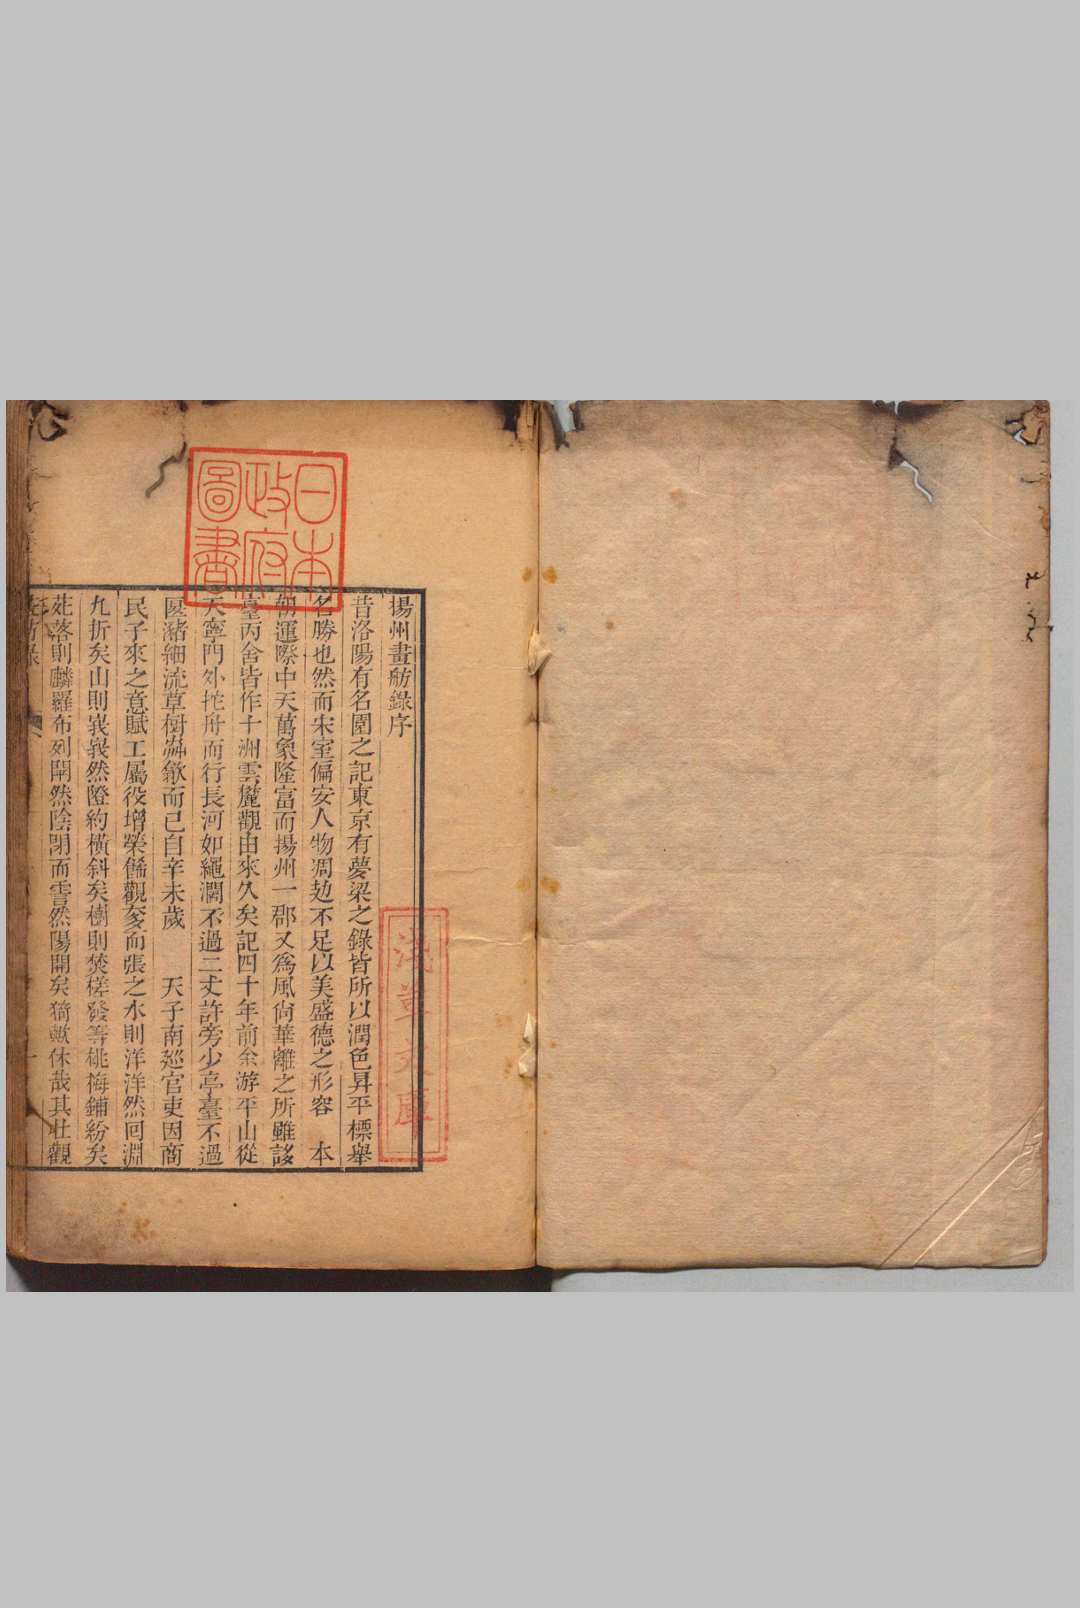 揚州畫舫錄序
昔洛陽有名園之記東京有夢梁之錄皆所以潤色昇平標舉
名勝也然而宋室偏安人物凋𠡠不足以美盛德之形容　本
朝運際中天萬象隆富而揚州一郡又為風尚華離之所雖謻
臺丙舍皆作十洲雲麓觀由來久矣記四十年前余游平山從
天寧門外挖舟而行長河如繩濶不過二丈許旁少亭臺不過
匽瀦細流草樹𦶎歙而已自辛未歲　天子南廵官吏因商
民子來之意賦工屬役增榮飾觀奓而張之水則洋洋然回淵
九折矣山則峩峩然隥約橫斜矣樹則焚槎發等桃梅鋪紛矣
苑落則麟羅布列閜然陰閉而霅然陽開矣猗歟休哉其壯觀
日本
政府
圖書
淺草文庫